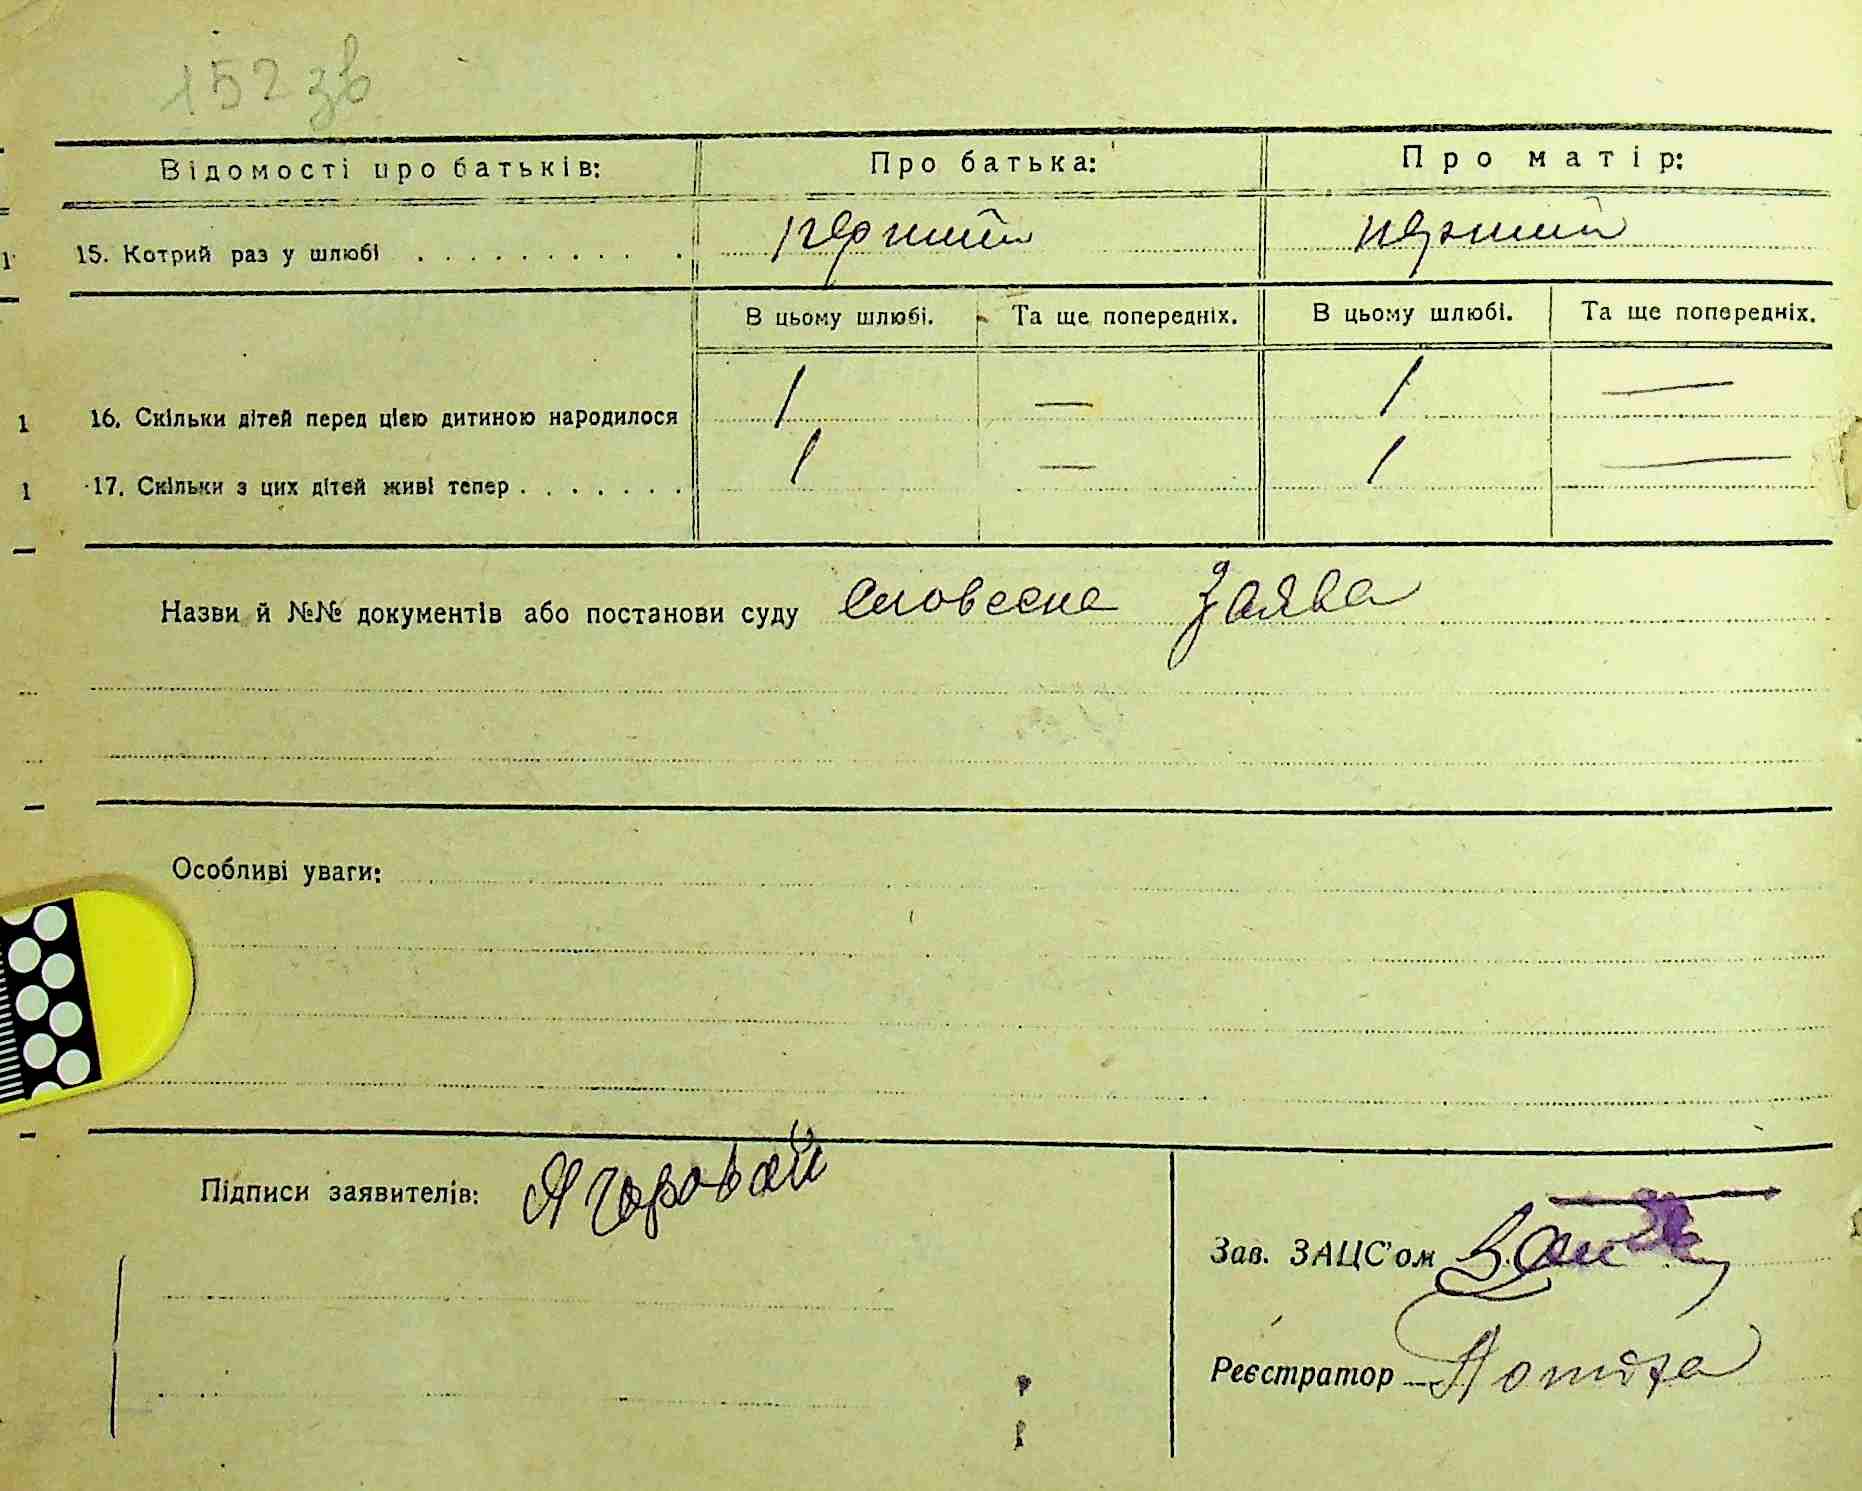 152 зв
Відомості про батьків: Про батька: Про матір:
15. Котрий раз у шлюбі . . . . . . . . . . перший перший
В цьому шлюбі. Та ще попередніх. В цьому шлюбі. Та ще попередніх.
1 16. Скільки дітей перед цією дитиною народилося 1 — 1 —
1 17. Скільки з цих дітей живі тепер . . . . . . . 1 — 1 —
Назви й №№ документів або постанови суду словесна заява
Особливі уваги:
Підписи заявителів:
Зав. ЗАЦС'ом
Реєстратор